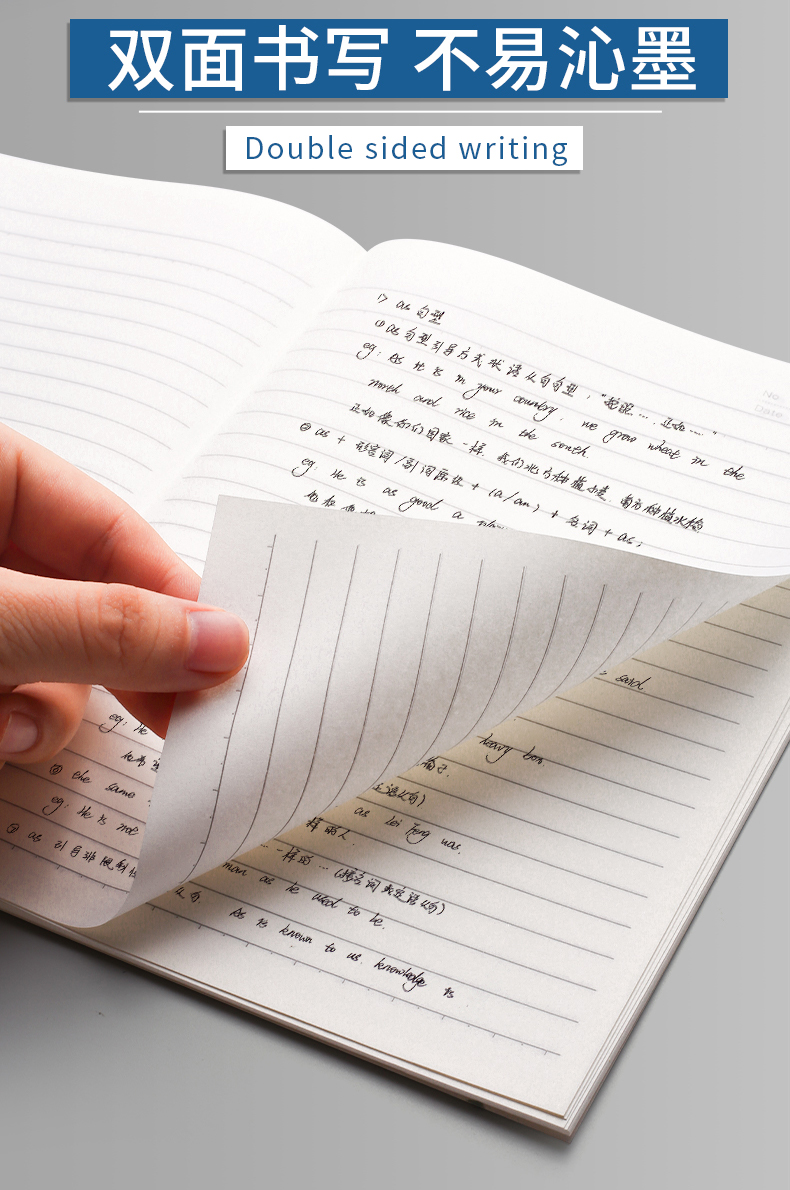 双面书写 不易沁墨
Double sided writing
No.
Date
1> as 句型
①as 句型引导方式状语从句句型："
eg: As it is in your country, we grow wheat in the
north and rice in the south.
正如像你们国家一样, 我们北方种植小麦, 南方种植水稻
②as + 形容词/副词原级 + (a/an) + 名词 + as;
eg: He is as good a
= said
heavy box.
as Lei Feng was.
样的人.
一样的
man as he used to be.
As is known to us, knowledge is
eg: He
⑥ the same
eg: He is not
⑦ as 引导非限制性